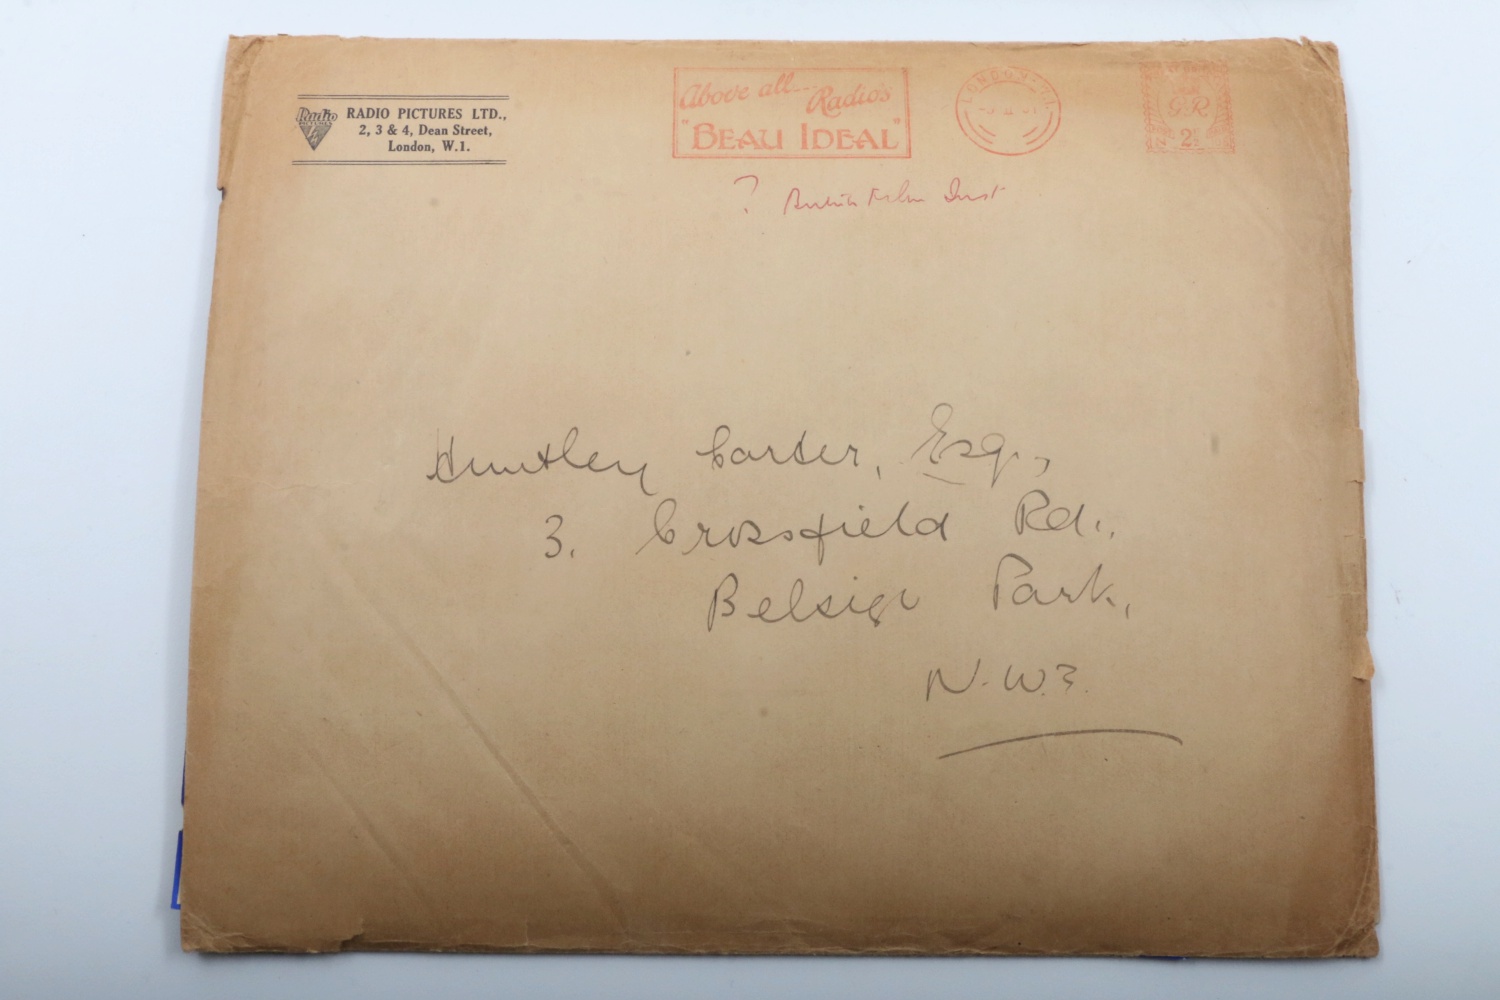 Radio
PICTURES
RADIO PICTURES LTD.,
2, 3 & 4, Dean Street,
London, W.1.
Above all... Radio's
"BEAU IDEAL"
LONDON W.1.
G R
2
? British Film Inst
Huntley Carter, Esq.,
3. Crossfield Rd.,
Belsize Park,
N.W.3.